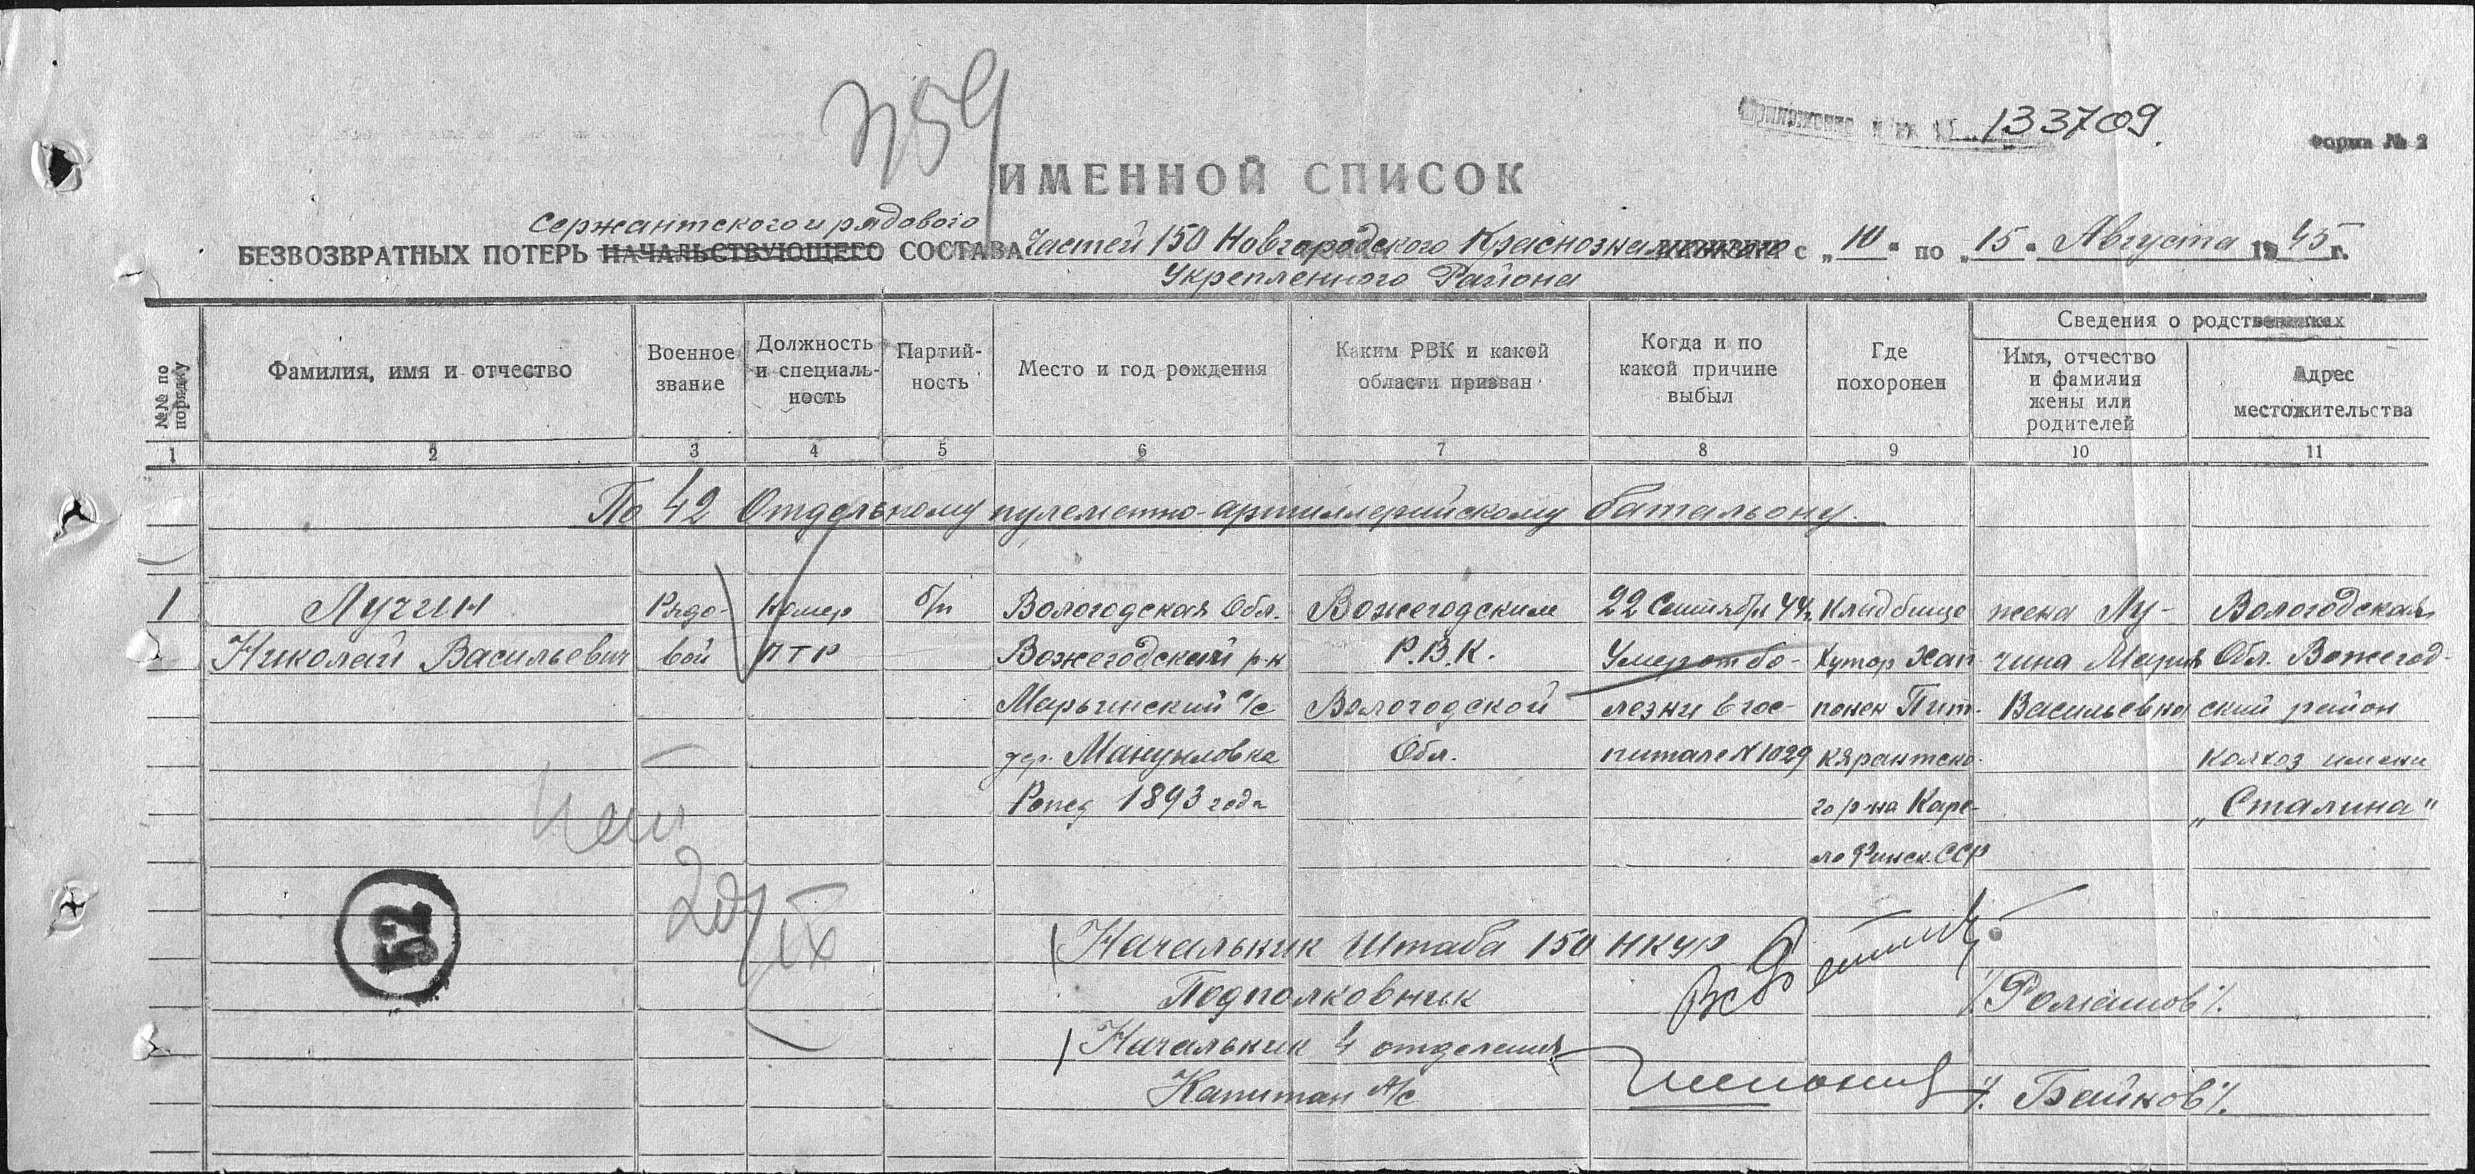 759
133709.
Форма № 2
ИМЕННОЙ СПИСОК
Сержантского и рядового
БЕЗВОЗВРАТНЫХ ПОТЕРЬ НАЧАЛЬСТВУЮЩЕГО СОСТАВА Частей 150 Новгородского Краснознаменного с „10“ по „15“ Августа 1945 г.
Укрепленного Района
№№ по порядку
Фамилия, имя и отчество
Военное звание
Должность и специальность
Партийность
Место и год рождения
Каким РВК и какой области призван
Когда и по какой причине выбыл
Где похоронен
Сведения о родственниках
Имя, отчество и фамилия жены или родителей
Адрес местожительства
1 2 3 4 5 6 7 8 9 10 11
По 42 Отдельному пулеметно-артиллерийскому батальону.
1 Лучин Рядо- Номер б/п Вологодская Обл. Вожегодским 22 Сентября 44г. Кладбище жена Лу- Вологодская
Николай Васильевич вой ПТР Вожегодский р-н Р.В.К. Умер от бо- Хутор Хап чина Мария Обл. Вожегод-
Марьинский С/с Вологодской лезни в гос- понен Пит- Васильевна ский район
дер. Обл. питале №1029 кярантско- колхоз имени
1893 года го р-на Каре- „Сталина“
ло Финск. ССР
52
20/IX
Начальник Штаба 150 НКУР
Подполковник /Романов/.
Начальник 4 отделения
Капитан А/с /Байков/.